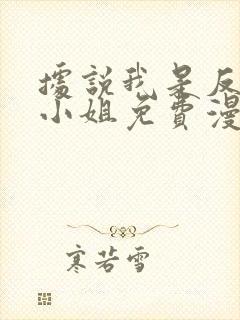 據說我是反
小姐免費漫
寒若雪